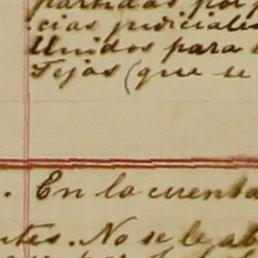 partidas por
cias judiciales
Unidos para
Tejas (que se
. En la cuenta
ntes. No se le ab